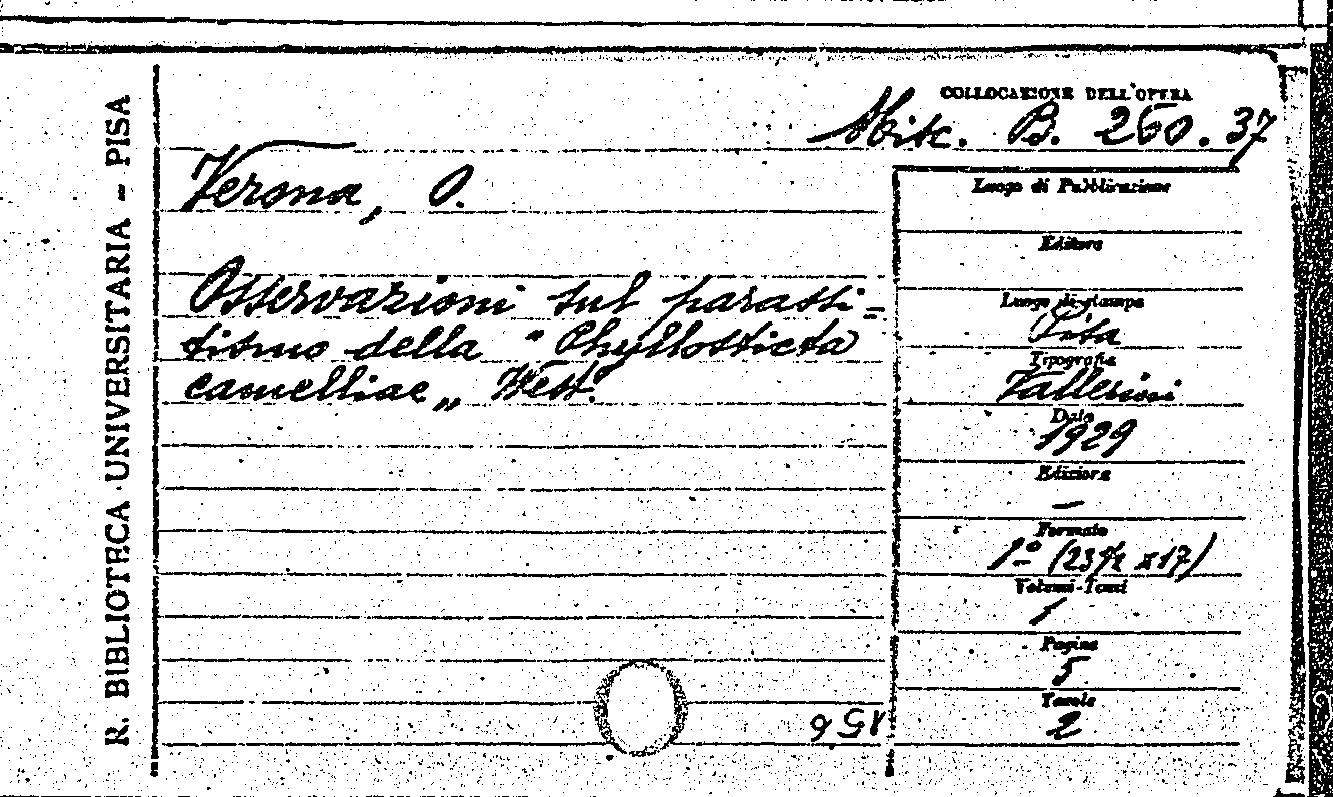 R. BIBLIOTECA UNIVERSITARIA - PISA
COLLOCAZIONE DELL'OPERA
Misc. B. 260.37
Verona, O.
Osservazioni sul parassi=
tismo della "Phyllosticta
camelliae„ West.
Luogo di Pubblicazione
Editore
Luogo di stampa
Pisa
Tipografia
Vallerini
Data
1929
Edizione
—
Formato
1º (23½ x17)
Volumi-Tomi
/
Pagine
5
Tavole
2